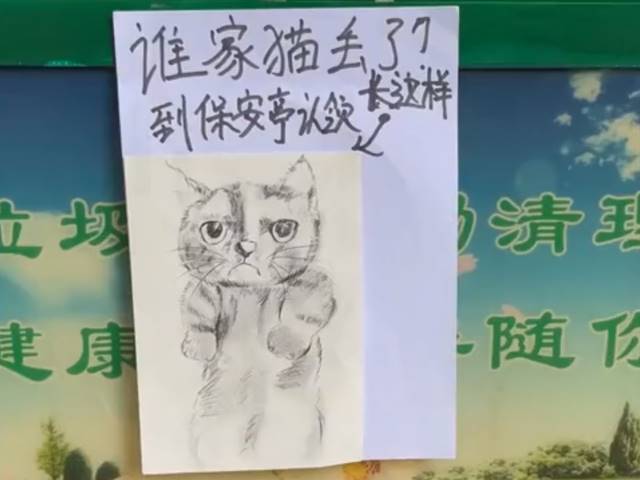 谁家猫丢了?
到保安亭认领
长这样
垃圾
勤清理
健康
随你